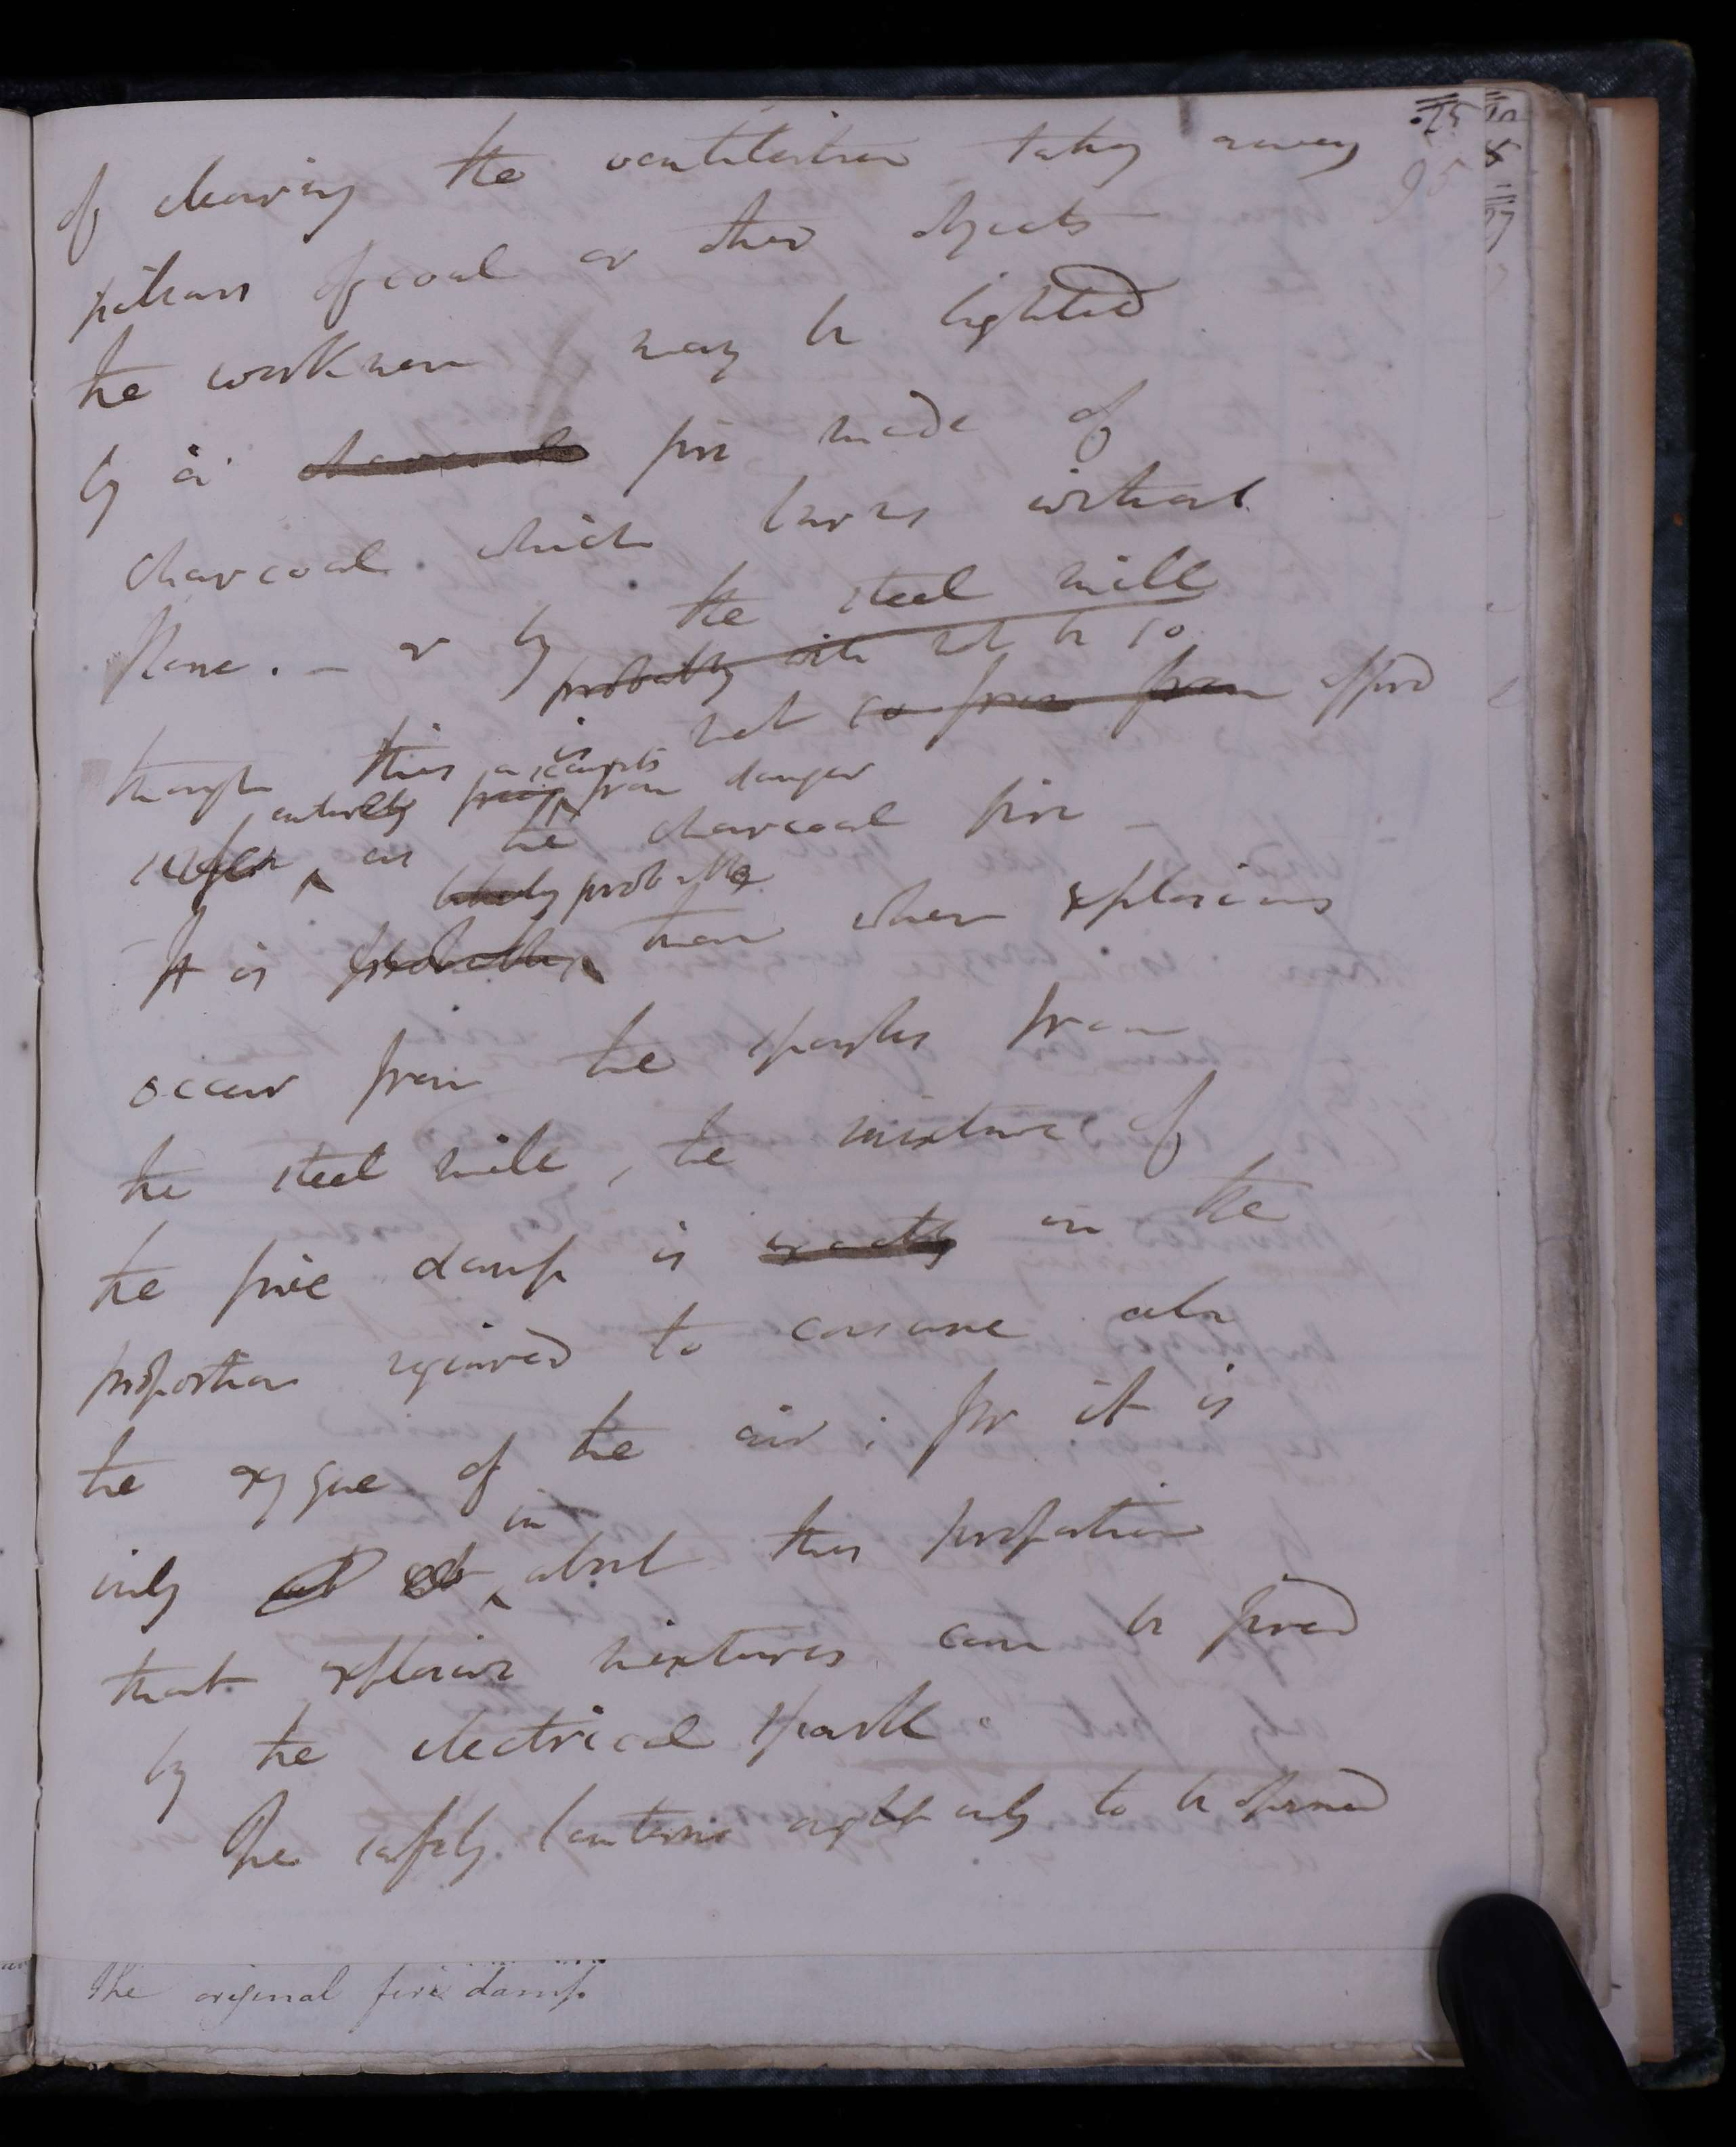 95
of clearing the ventilation taking away
pillars of coal or other objects
the workmen may be lighted
by a charcoal fire made of
charcoal which burns without
flame. — or by the steel mill
probably will not be so
though this is not so free from afford
entirely security from danger
safe as the charcoal fire —
likely probable
It is probably that when explosions
occur from the sparks from
the steel mill, the mixture of
the fire damp is exactly in the
proportion required to consume all
the oxygene of the air; for it is
in
only at about this proportion
that explosive mixtures can be fired
by the electrical spark.
The safety lanterns ought only to be opened
the original fire damp.